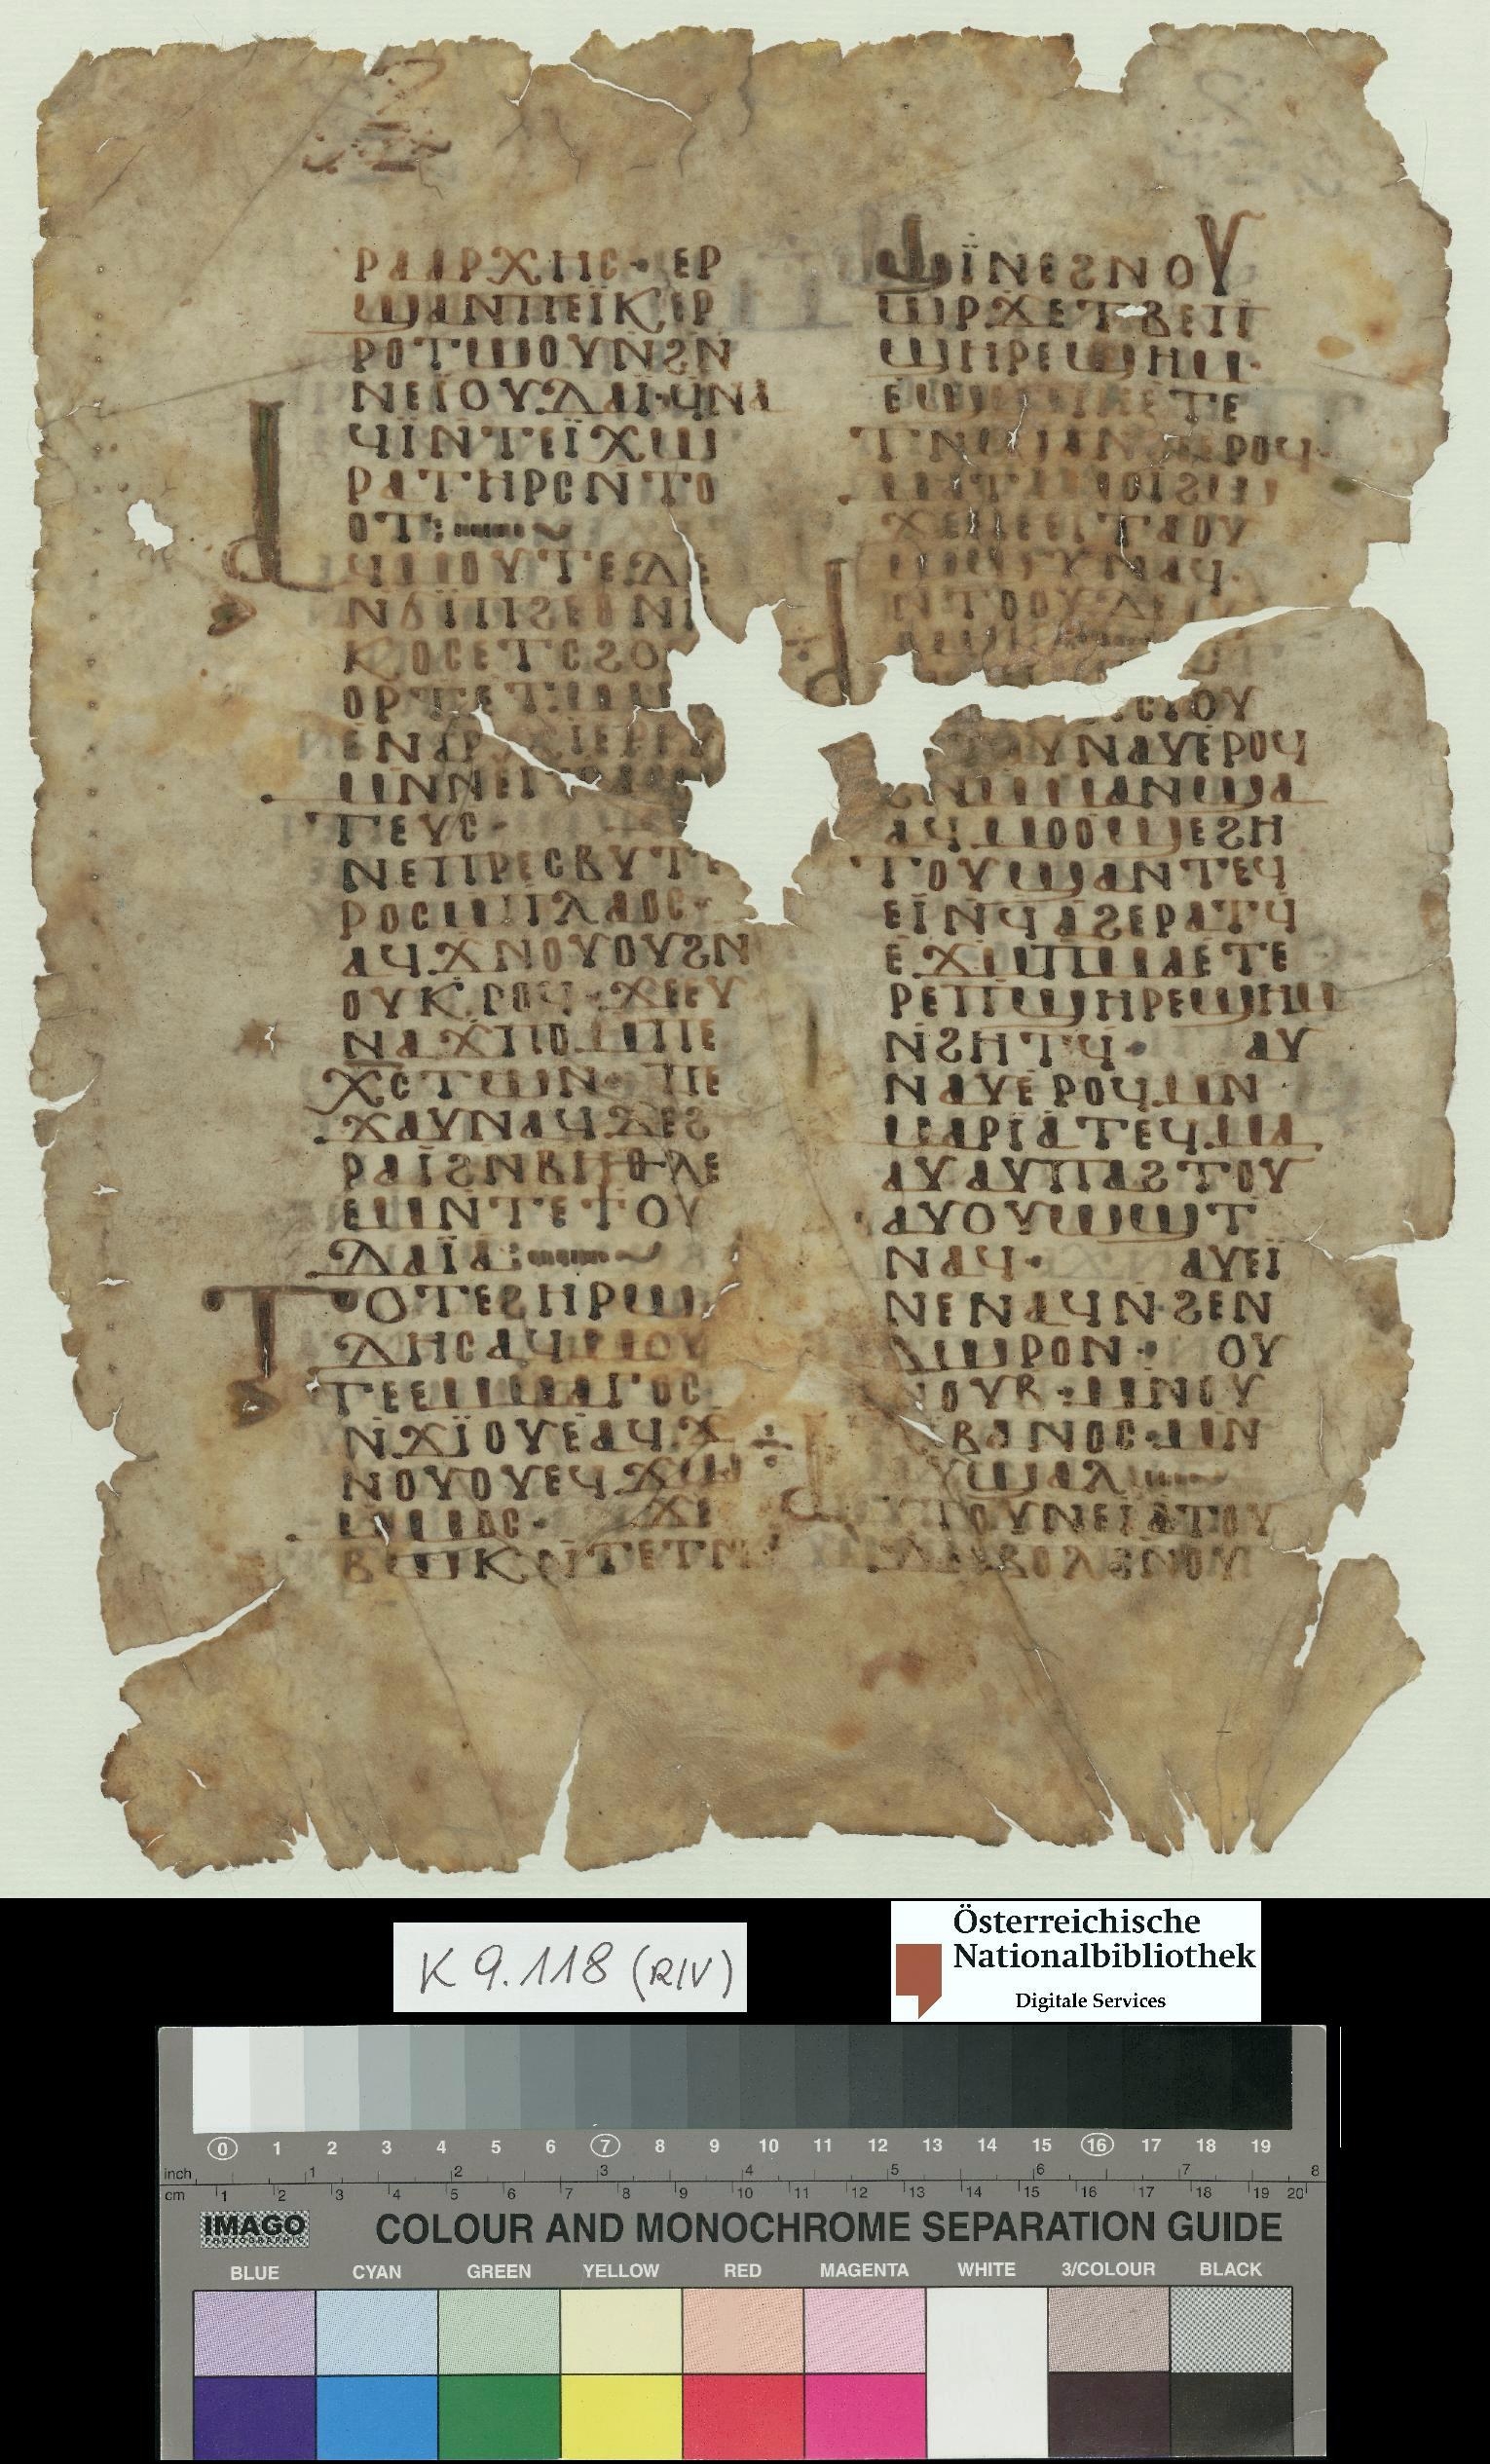 ⲣⲁⲁⲣⲭⲏⲥ· ⲉⲣ
ϣⲁⲛⲡⲉⲓ̈ⲕⲉⲣ
ⲣⲟⲧⲙⲟⲩⲛϩⲛ
ⲛⲉⲓ̈ⲟⲩⲇⲁⲓ·ϥⲛⲁ
ϥⲓ̈ⲛⲧⲉⲓ̈ⲭⲱ
ⲣⲁⲧⲏⲣⲥⲛⲧⲟ
ⲟⲧ:
ⲁϥⲙⲟⲩⲧⲉⲇⲉ
ⲛϭⲓ̈ⲡϩⲉⲑⲛⲓ
ⲕⲟⲥⲉⲧⲥϩⲟ
ⲟⲣⲧ
ⲉⲛⲁⲣⲭⲓⲉⲣⲉⲩ
ⲙⲛⲛⲉⲅⲣⲁⲙ
ⲧⲉⲩⲥ·
ⲛⲉⲡⲣⲉⲥⲃⲩⲧⲉ
ⲣⲟⲥⲙⲡⲗⲁⲟⲥ·
ⲁϥϫⲛⲟⲩⲟⲩϩⲛ
ⲟⲩⲕⲣⲟϥ·ϫⲉⲉⲩ
ⲛⲁϫⲡⲟⲙⲡⲉ
ⲭⲥⲧⲱⲛ· ⲡⲉ
ϫⲁⲩⲛⲁϥϫⲉϩ
ⲣⲁⲓ̈ϩⲛⲃⲏⲑⲗⲉ
ⲉⲙⲛⲧⲉϯⲟⲩ
ⲇⲁⲓ̈ⲁ:
ⲧⲟⲧⲉϩⲏⲣⲱ
ⲇⲏⲥⲁϥⲙⲟⲩ
ⲧⲉⲉⲙⲙⲁⲅⲟⲥ
ⲛϫⲓ̈ⲟⲩⲉⲁϥϫ
ⲛⲟⲩⲟⲩⲉϥϫⲱ
ⲙⲙⲟⲥ· ϫⲉ
ⲃⲱⲕⲛⲧⲉⲧⲛ
ϣⲓ̈ⲛⲉϩⲛⲟⲩ
ⲱⲣϫⲉⲧⲃⲉⲡ
ϣⲏⲣⲉϣⲏⲙ·
ⲉϣⲱⲡⲉⲉⲧⲉ
ⲧⲛϣⲁⲛϩⲉⲉⲣⲟϥ·
ⲙⲁⲧⲁⲙⲟⲓϩⲱ
ϫⲉⲉⲉⲓⲧⲁⲟⲩ
ⲱϣⲧⲛⲁϥ·
ⲛⲧⲟⲟⲩⲇⲉ
ⲥⲓⲟⲩ
ⲧⲟⲩⲛⲁⲩⲉⲣⲟϥ
ϩⲛⲙⲙⲁⲛϣⲁ
ⲁϥⲙⲟⲟϣⲉϩⲏ
ⲧⲟⲩϣⲁⲛⲧⲉϥ
ⲉⲓ̈ⲛϥⲁϩⲉⲣⲁⲧϥ
ⲉϫⲙⲡⲙⲁⲉⲧⲉ
ⲣⲉⲡϣⲏⲣⲉϣⲏⲙ
ⲛϩⲏⲧϥ· ⲁⲩ
ⲛⲁⲩⲉⲣⲟϥⲙⲛ
ⲙⲁⲣⲓ̈ⲁⲧⲉϥⲙⲁ
ⲁⲩⲁⲩⲡⲁϩⲧⲟⲩ
ⲁⲩⲟⲩⲱϣⲧ
ⲛⲁϥ· ⲁⲩⲉⲓ̈
ⲛⲉⲛⲁϥⲛϩⲉⲛ
ⲇⲱⲣⲟⲛ· ⲟⲩ
ⲛⲟⲩⲃ·ⲙⲛⲟⲩ
ⲃⲁⲛⲟⲥ·ⲙⲛ
ⲩϣⲁⲗ
ⲁⲩⲧⲟⲩⲛⲉⲓⲁⲧⲟⲩ
ⲇⲉⲉⲃⲟⲗϩⲛⲟⲩ
K 9.118 (R/V)
Österreichische
Nationalbibliothek
Digitale Services
0 1 2 3 4 5 6 7 8 9 10 11 12 13 14 15 16 17 18 19
inch 1 2 3 4 5 6 7 8
cm 1 2 3 4 5 6 7 8 9 10 11 12 13 14 15 16 17 18 19 20
IMAGO COLOUR AND MONOCHROME SEPARATION GUIDE
BLUE CYAN GREEN YELLOW RED MAGENTA WHITE 3/COLOUR BLACK